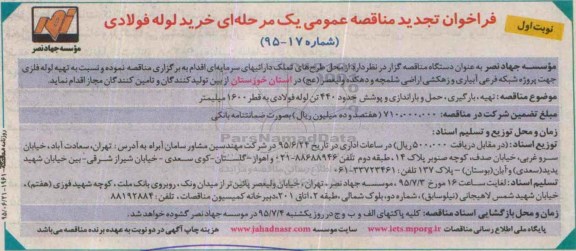 نوبت اول
فراخوان تجدید مناقصه عمومی یک مرحله‌ای خرید لوله فولادی
(شماره ۱۷-۹۵)
مؤسسه جهاد نصر
مؤسسه جهاد نصر به عنوان دستگاه مناقصه گزار در نظر دارد از محل طرح‌های تملک دارائیهای سرمایه‌ای اقدام به برگزاری مناقصه نموده و نسبت به تهیه لوله فلزی
جهت پروژه شبکه فرعی آبیاری و زهکشی اراضی شلمچه و دهکده ولیعصر (عج) در استان خوزستان از بین تولید کنندگان و تامین کنندگان مجاز اقدام نماید.
موضوع مناقصه: تهیه، بارگیری، حمل و باراندازی و پوشش حدود ۴۴۰ تن لوله فولادی به قطر ۱۶۰۰ میلیمتر
مبلغ تضمین شرکت در مناقصه: ۷۱۰،۰۰۰،۰۰۰ (هفتصد و ده میلیون ریال) بصورت ضمانتنامه بانکی
زمان و محل توزیع و تسلیم اسناد:
توزیع اسناد: (در مقابل دریافت ۵۰۰،۰۰۰ ریال) در ساعات اداری در تاریخ ۹۵/۶/۲۲ در شرکت مهندسین مشاور سامان آبراه به آدرس: تهران، سعادت آباد، خیابان
سرو غربی، خیابان صدف، کوچه صنوبر پلاک ۱۴، طبقه دوم تلفن ۸۸۶۸۸۹۴۶-۰۲۱ و اهواز-گلستان-کوی سعدی - خیابان شیراز شرقی- بین خیابان شهید
پدید(سعدی) و آبان(بوستان) - پلاک ۱۳۷ تلفن: ۳۳۷۲۳۴۶۱-۰۶۱
تسلیم اسناد: لغایت ساعت ۱۶ مورخ ۹۵/۷/۳، مؤسسه جهاد نصر، تهران، خیابان ولیعصر پائین تر از میدان ونک، روبروی بانک ملت، کوچه شهید فوزی (هفتم)،
خیابان شهید شمس لاهیجانی (نیلو سابق)، شماره دو، بلوک شمالی، طبقه ۲، اتاق ۲۰۱، دبیرخانه کمیسیون مناقصات، تلفن: ۸۸۱۹۲۸۸۴
زمان و محل بازگشایی اسناد مناقصه: کلیه پاکتهای الف و ب و ج در روز یکشنبه ۹۵/۷/۴ در موسسه جهاد نصر گشوده خواهد شد.
پایگاه ملی اطلاع رسانی مناقصات www.iets.mporg.ir سایت موسسه www.jahadnasr.com هزینه چاپ آگهی در دو نوبت به عهده برنده مناقصه می‌باشد
ParsNamadData